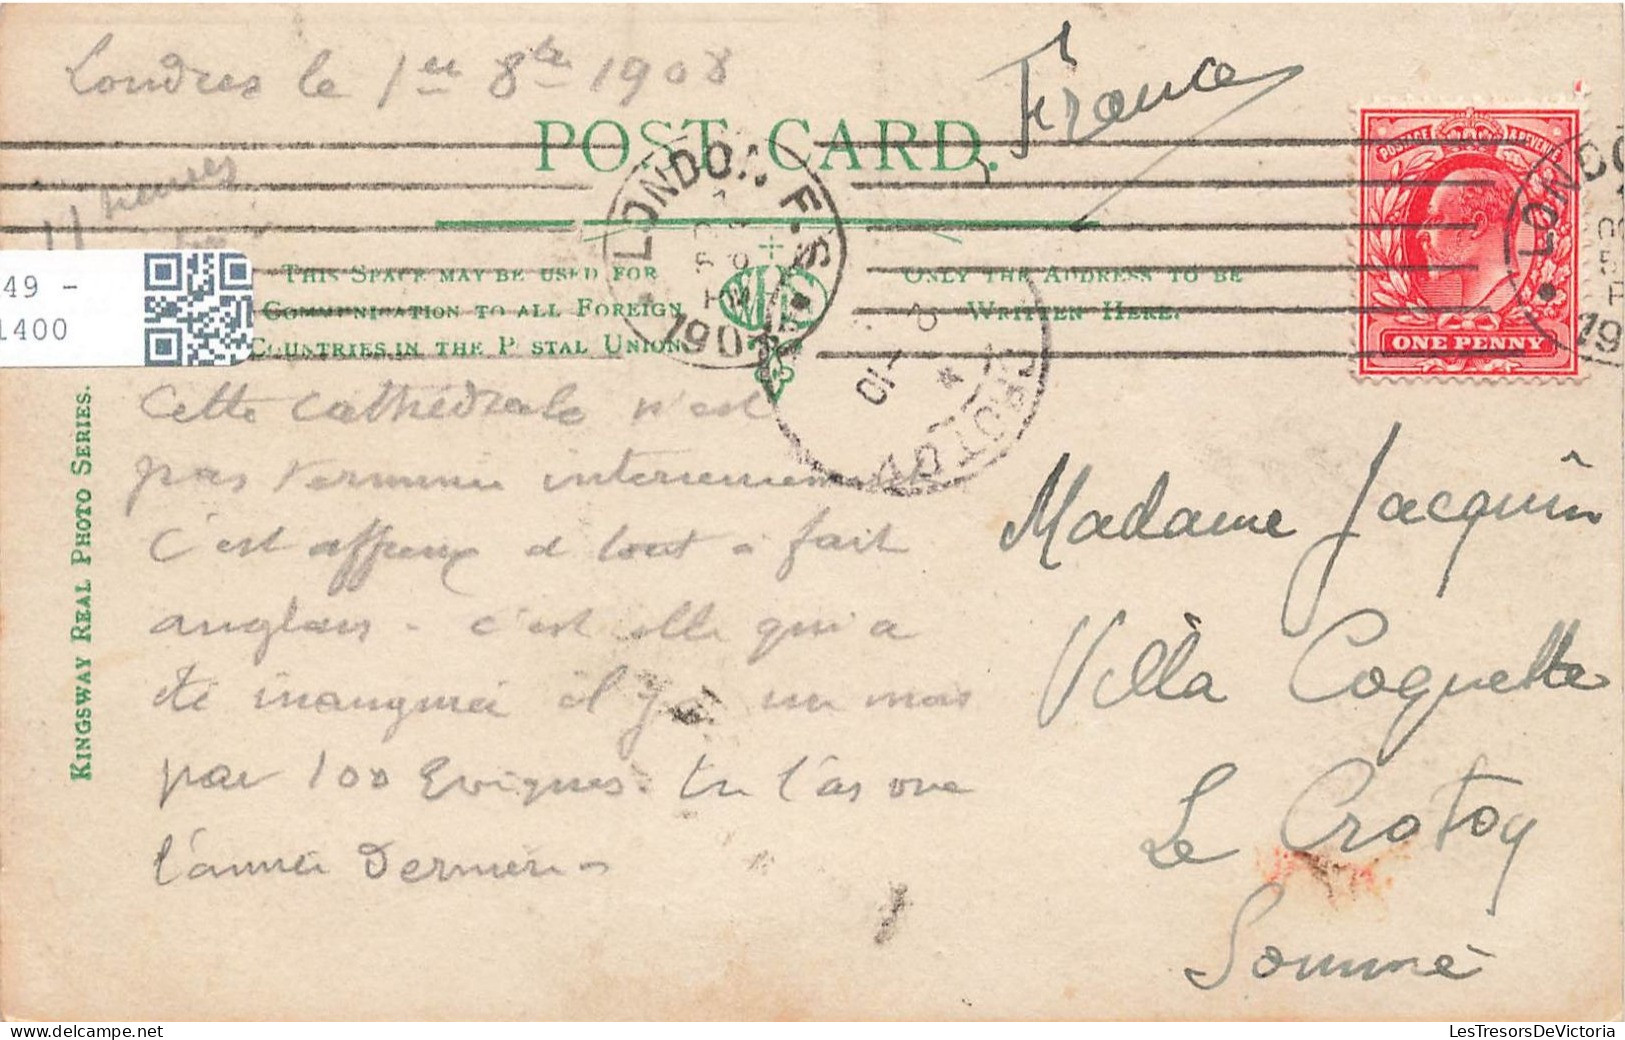 Londres le 1er 8bre 1908
11 heures
France
POST CARD.
POSTAGE & REVENUE
ONE PENNY
LONDON. F.S.
190
LONDO
19
THIS SPACE MAY BE USED FOR
COMMUNICATION TO ALL FOREIGN
COUNTRIES IN THE P STAL UNION.
ONLY THE ADDRESS TO BE
WRITTEN HERE.
49 -
1400
KINGSWAY REAL PHOTO SERIES.
CROTOY
Cette cathédrale n'est
pas terminée interieurement
C'est affreux et tout a fait
anglais - c'est elle qui a
été inaugurée il y a un mois
par 100 Evêques. Tu l'as vue
l'année dernière -
Madame Jacquin
Villa Coquette
Le Crotoy
Somme
LesTresorsDeVictoria